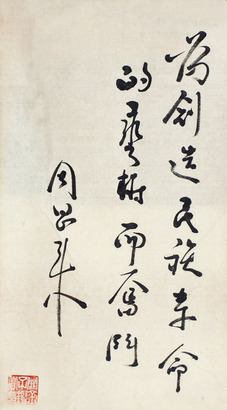 為創造民族革命
的藝術而奮鬥
周